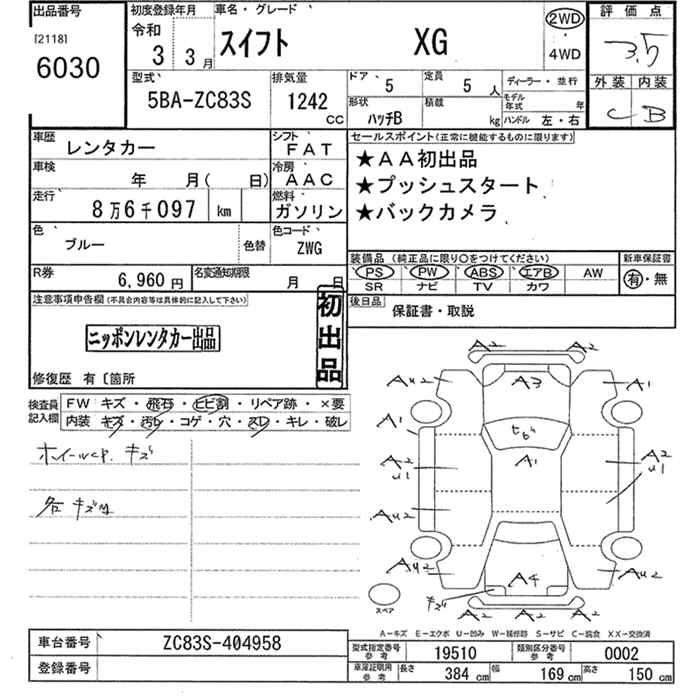 出品番号 初度登録年月 車名・グレード 評価点
[2118] 令和 2WD
6030 3 3月 スイフト XG ・ 3.5
4WD
型式 排気量 ドア 5 定員 5人 ディーラー・並行 外装 内装
5BA-ZC83S 1242 CC 形状 ハッチB 積載 kg モデル年式 年 C B
ハンドル 左・右
車歴 レンタカー シフト FAT セールスポイント(正常に機能するものに限ります)
車検 年 月( 日) 冷房 AAC ★AA初出品
走行 8万6千097 km 燃料 ガソリン ★プッシュスタート
★バックカメラ
色 ブルー 色替 色コード ZWG
装備品(純正品に限り○をつけてください) 新車保証書
R券 6,960円 名変通知期限 月 日 PS PW ABS エアB AW 有・無
SR ナビ TV カワ
注意事項申告欄(不具合内容等は具体的に記入して下さい) 初出品 後日品 保証書・取説
ニッポンレンタカー出品
修復歴 有〔箇所
検査員記入欄 FW キズ・飛石・ヒビ割・リペア跡・×要
内装 キズ・汚レ・コゲ・穴・スレ・キレ・破レ
A2 A2
AU2 A3 A1
ホイールCP. キズ
A1 ヒビ
A2 U1 A1 A2 U1
各キズ凹
AU2
AU2 A4 AU2
キズ
スペア A2 A2 A2
A-キズ E-エクボ U-凹み W-補修跡 S-サビ C-腐食 XX-交換済
車台番号 ZC83S-404958 型式指定番号 参考 19510 類別区分番号 参考 0002
登録番号 車庫証明用 参考 長さ 384 cm 幅 169 cm 高さ 150 cm